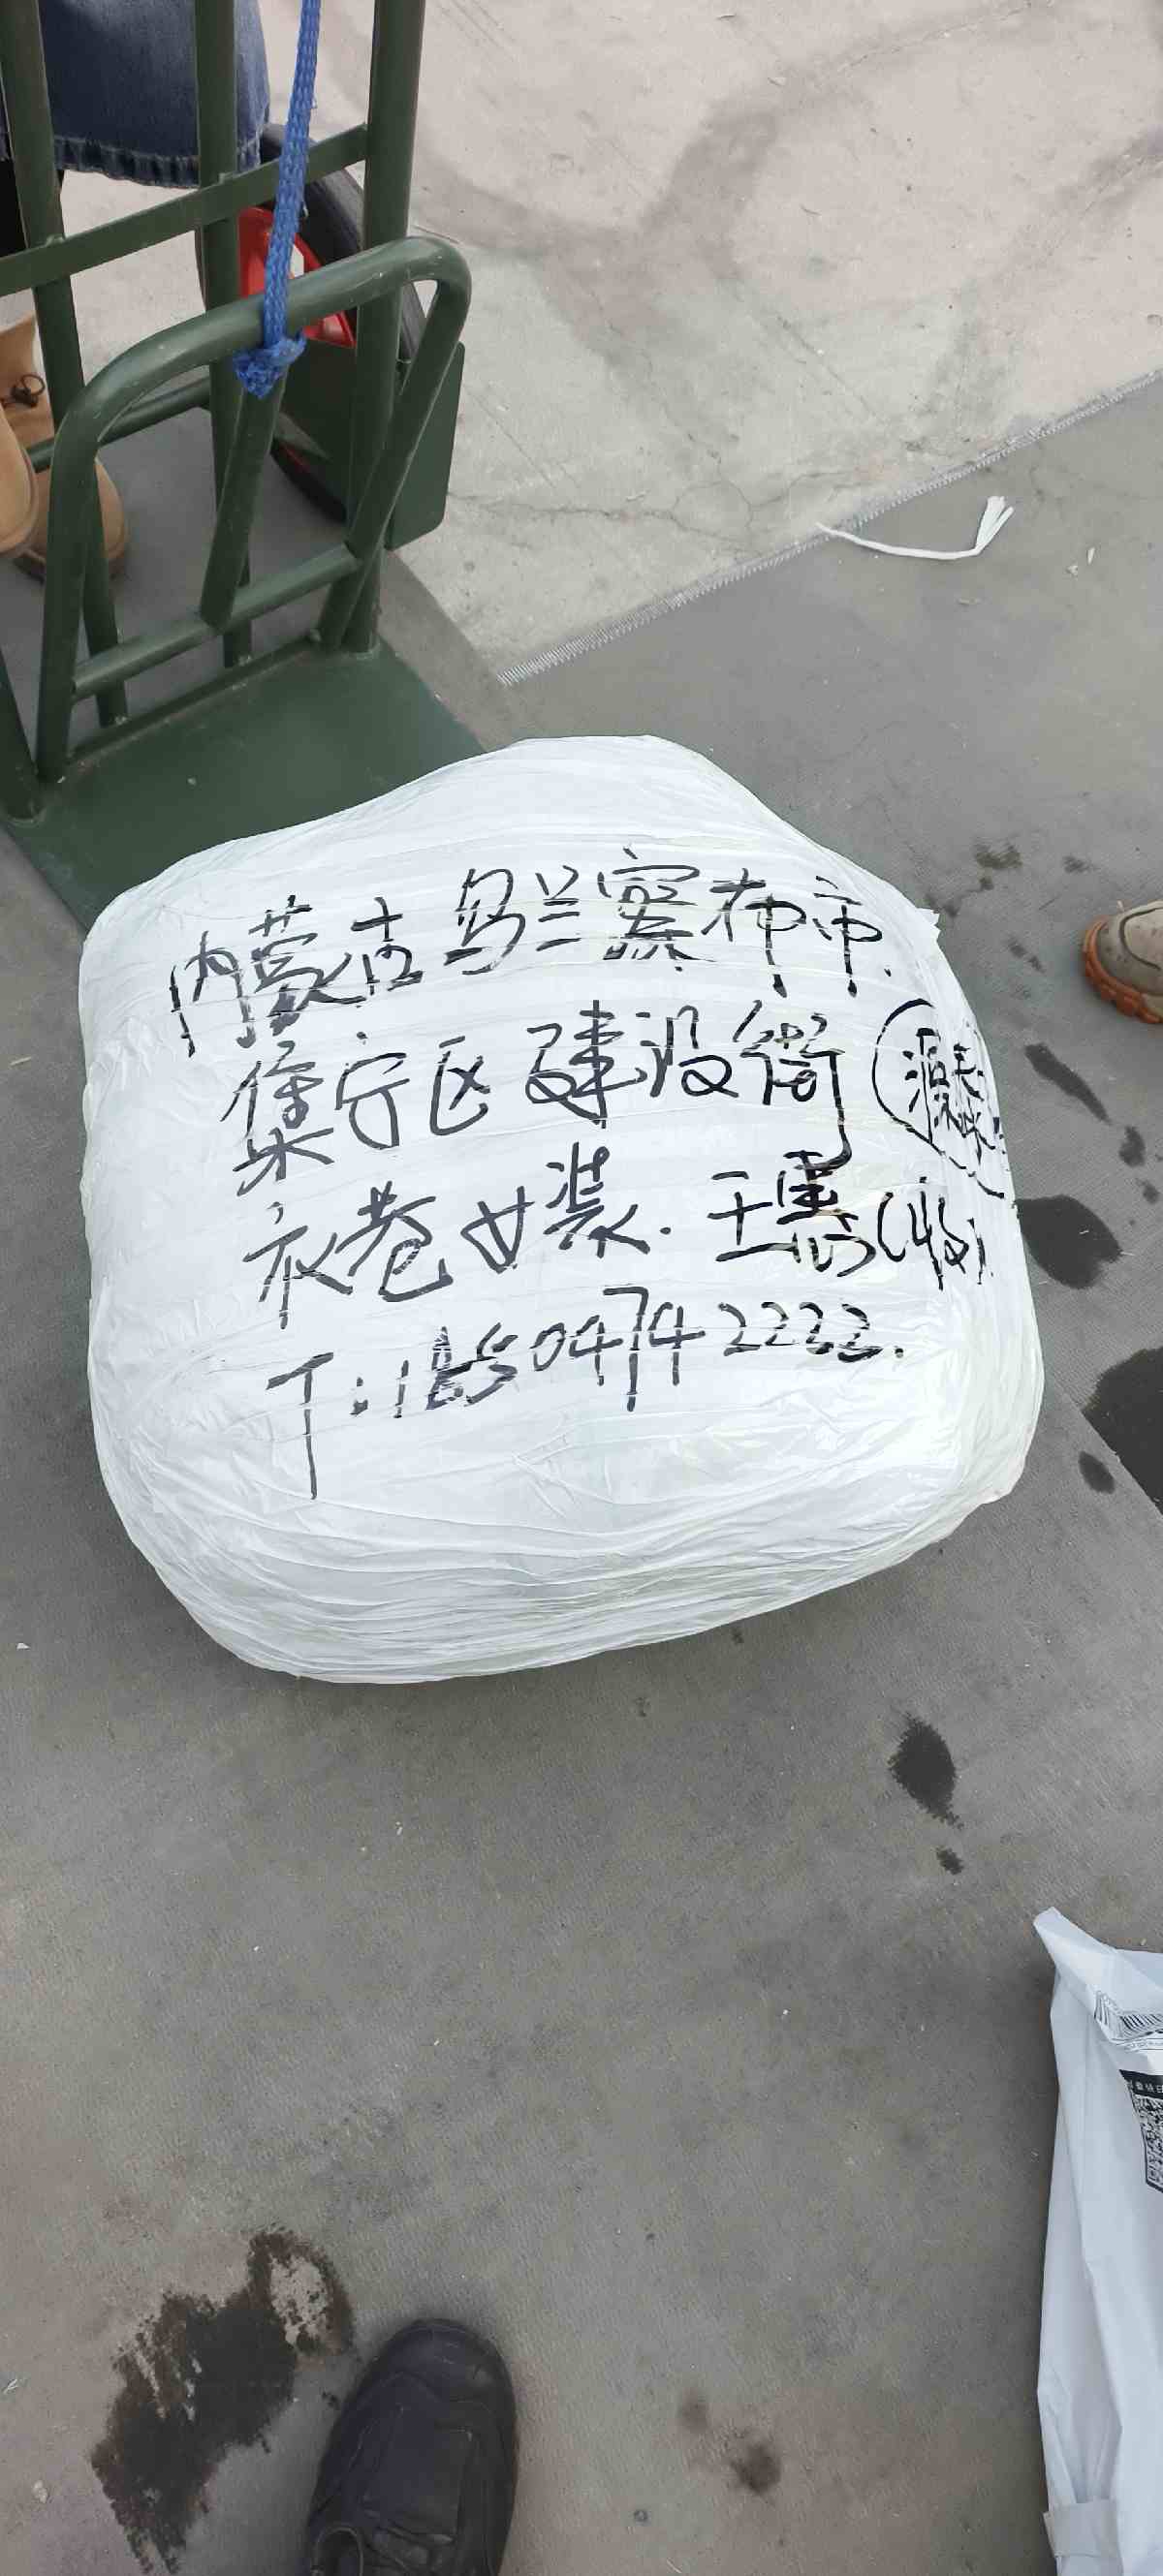 内蒙古乌兰察布市.
集宁区建设街 源泰
衣巷女装.王惠(收)
T:18504742222.